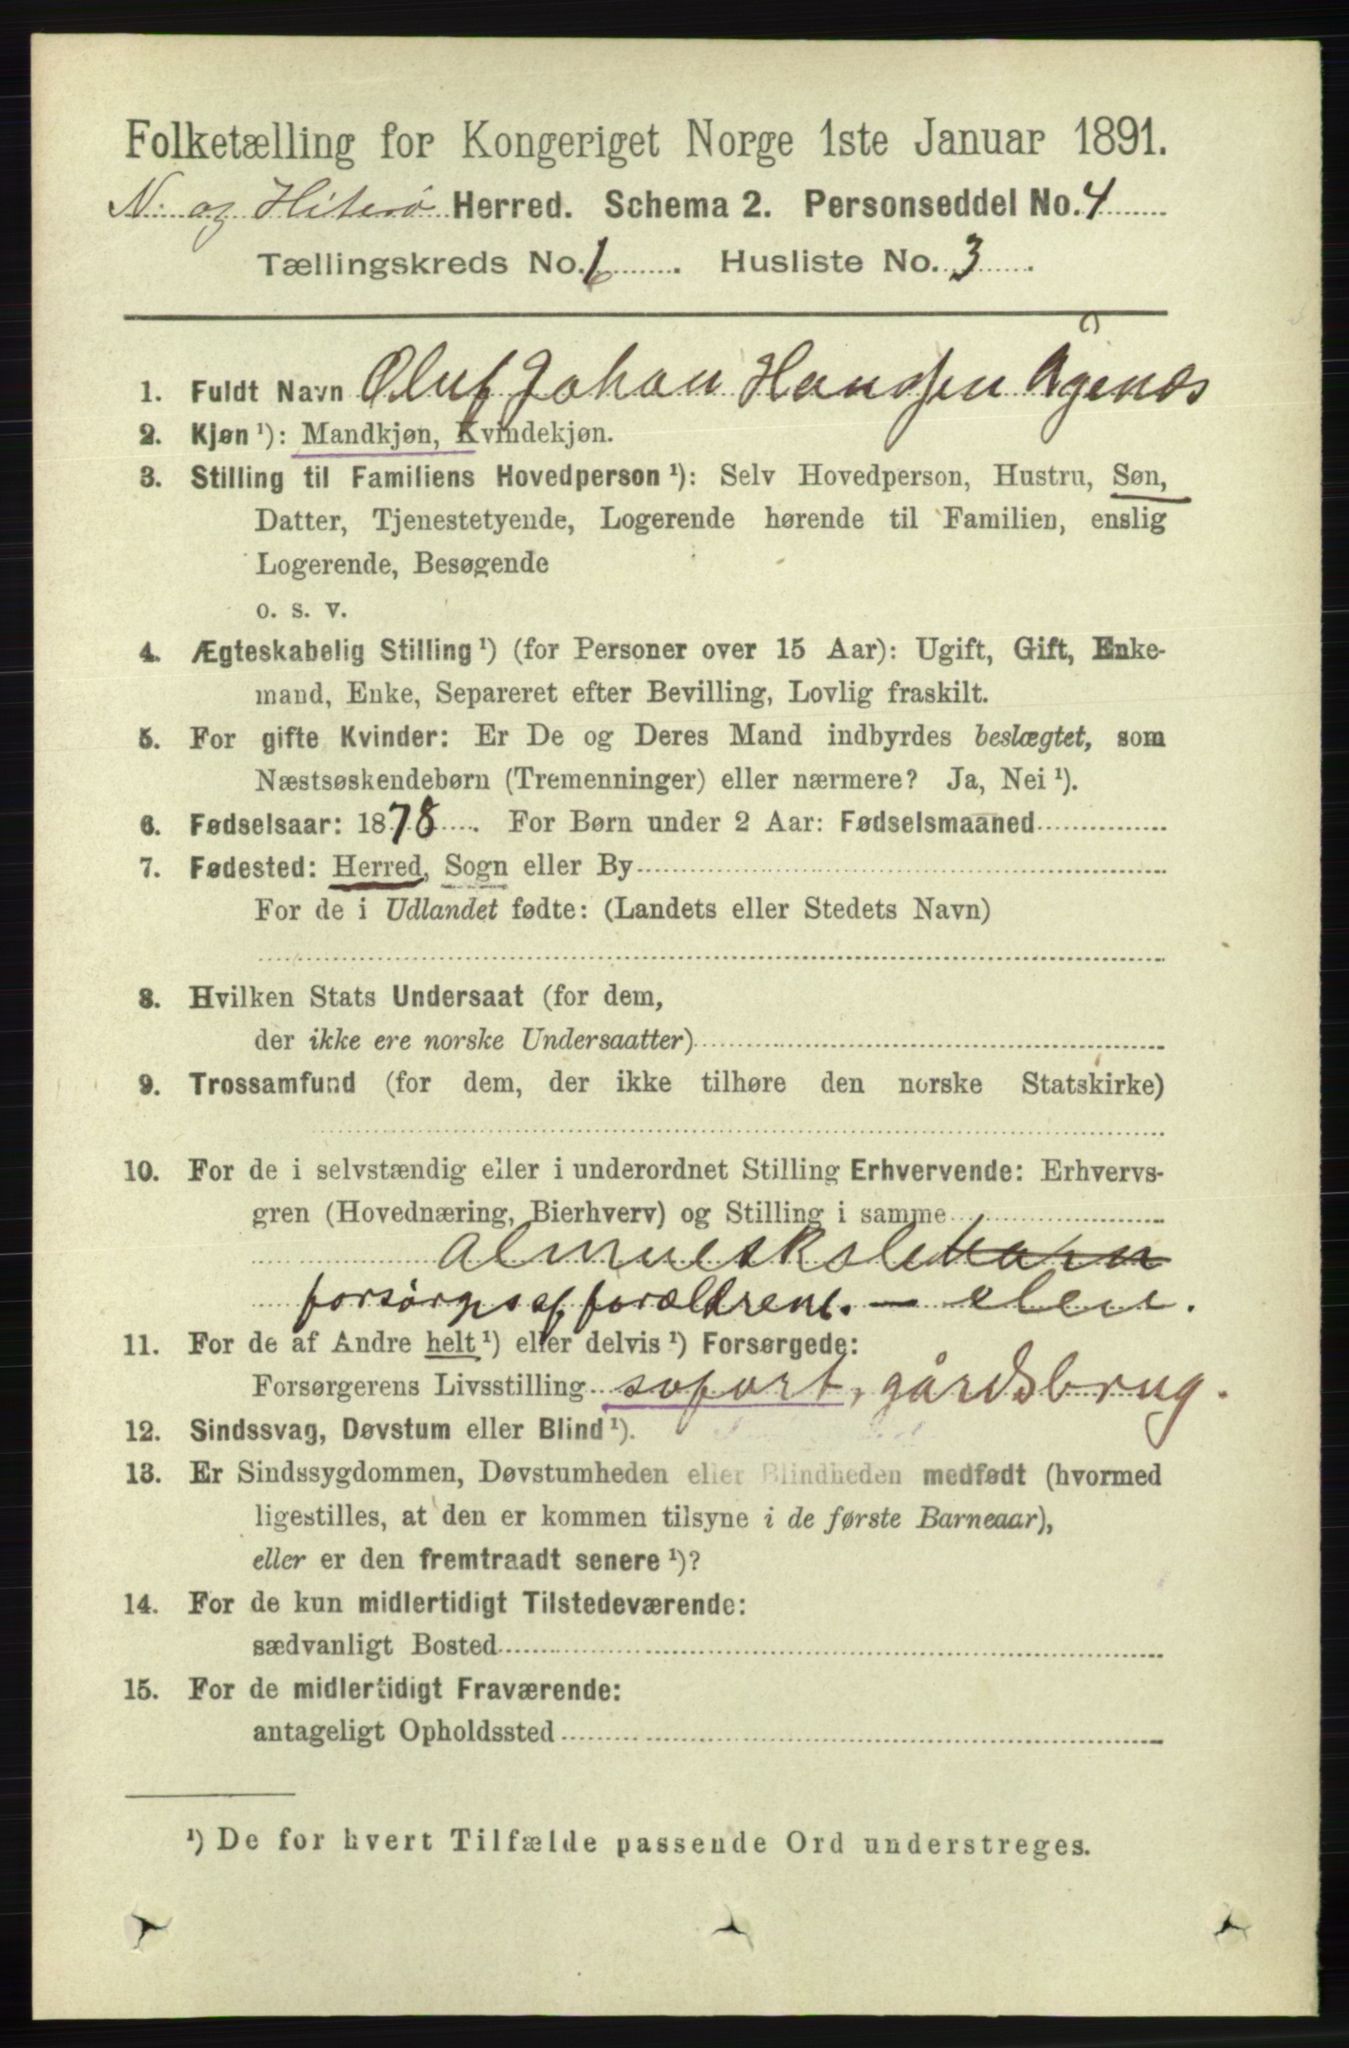 Folketælling for Kongeriget Norge 1ste Januar 1891.
N. og Hiterø Herred. Schema 2. Personseddel No. 4
Tællingskreds No. 1. Husliste No. 3.
1. Fuldt Navn Oluf Johan Hansen Ågenæs
2. Kjøn ¹): Mandkjøn, Kvindekjøn.
3. Stilling til Familiens Hovedperson ¹): Selv Hovedperson, Hustru, Søn,
Datter, Tjenestetyende, Logerende hørende til Familien, enslig
Logerende, Besøgende
o. s. v.
4. Ægteskabelig Stilling ¹) (for Personer over 15 Aar): Ugift, Gift, Enke-
mand, Enke, Separeret efter Bevilling, Lovlig fraskilt.
5. For gifte Kvinder: Er De og Deres Mand indbyrdes beslægtet, som
Næstsøskendebørn (Tremenninger) eller nærmere? Ja, Nei ¹).
6. Fødselsaar: 1878. For Børn under 2 Aar: Fødselsmaaned
7. Fødested: Herred, Sogn eller By
For de i Udlandet fødte: (Landets eller Stedets Navn)
8. Hvilken Stats Undersaat (for dem,
der ikke ere norske Undersaatter)
9. Trossamfund (for dem, der ikke tilhøre den norske Statskirke)
10. For de i selvstændig eller i underordnet Stilling Erhvervende: Erhvervs-
gren (Hovednæring, Bierhverv) og Stilling i samme
almueskolebarn
forsørges af forældrene. — elev.
11. For de af Andre helt ¹) eller delvis ¹) Forsørgede:
Forsørgerens Livsstilling søfart, gårdsbrug.
12. Sindssvag, Døvstum eller Blind ¹).
13. Er Sindssygdommen, Døvstumheden eller Blindheden medfødt (hvormed
ligestilles, at den er kommen tilsyne i de første Barneaar),
eller er den fremtraadt senere ¹)?
14. For de kun midlertidigt Tilstedeværende:
sædvanligt Bosted
15. For de midlertidigt Fraværende:
antageligt Opholdssted
¹) De for hvert Tilfælde passende Ord understreges.